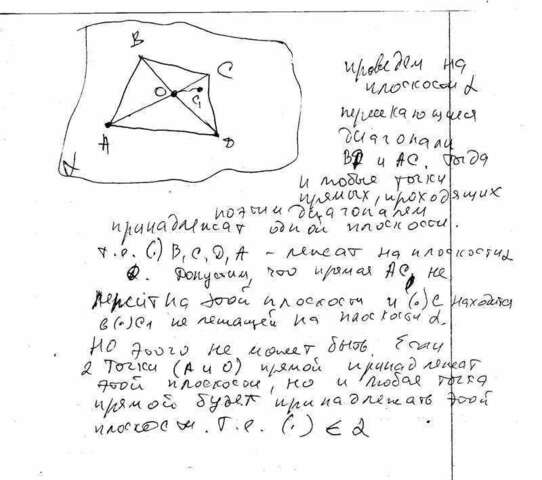 B
C
O
C1
A
D
α
проведем на
плоскости α
пересекающиеся
диагонали
BD и AC. Тогда
и любые точки
прямых, проходящих
по этим диагоналям
принадлежат одной плоскости.
т.е. (.) B, C, D, A - лежат на плоскости α
α. Допустим, что прямая AC, не
лежит на этой плоскости и (.) C находится
в (.) C1 не лежащей на плоскости α.
Но этого не может быть. Если
2 точки (A и O) прямой принадлежат
этой плоскости, но и любая точка
прямой будет принадлежать этой
плоскости. Т.е. (.) ∈ α